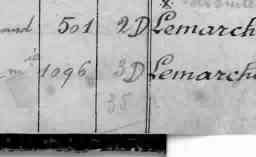 and 501 2D Lemarch
m 1096 3D Lemarch
35